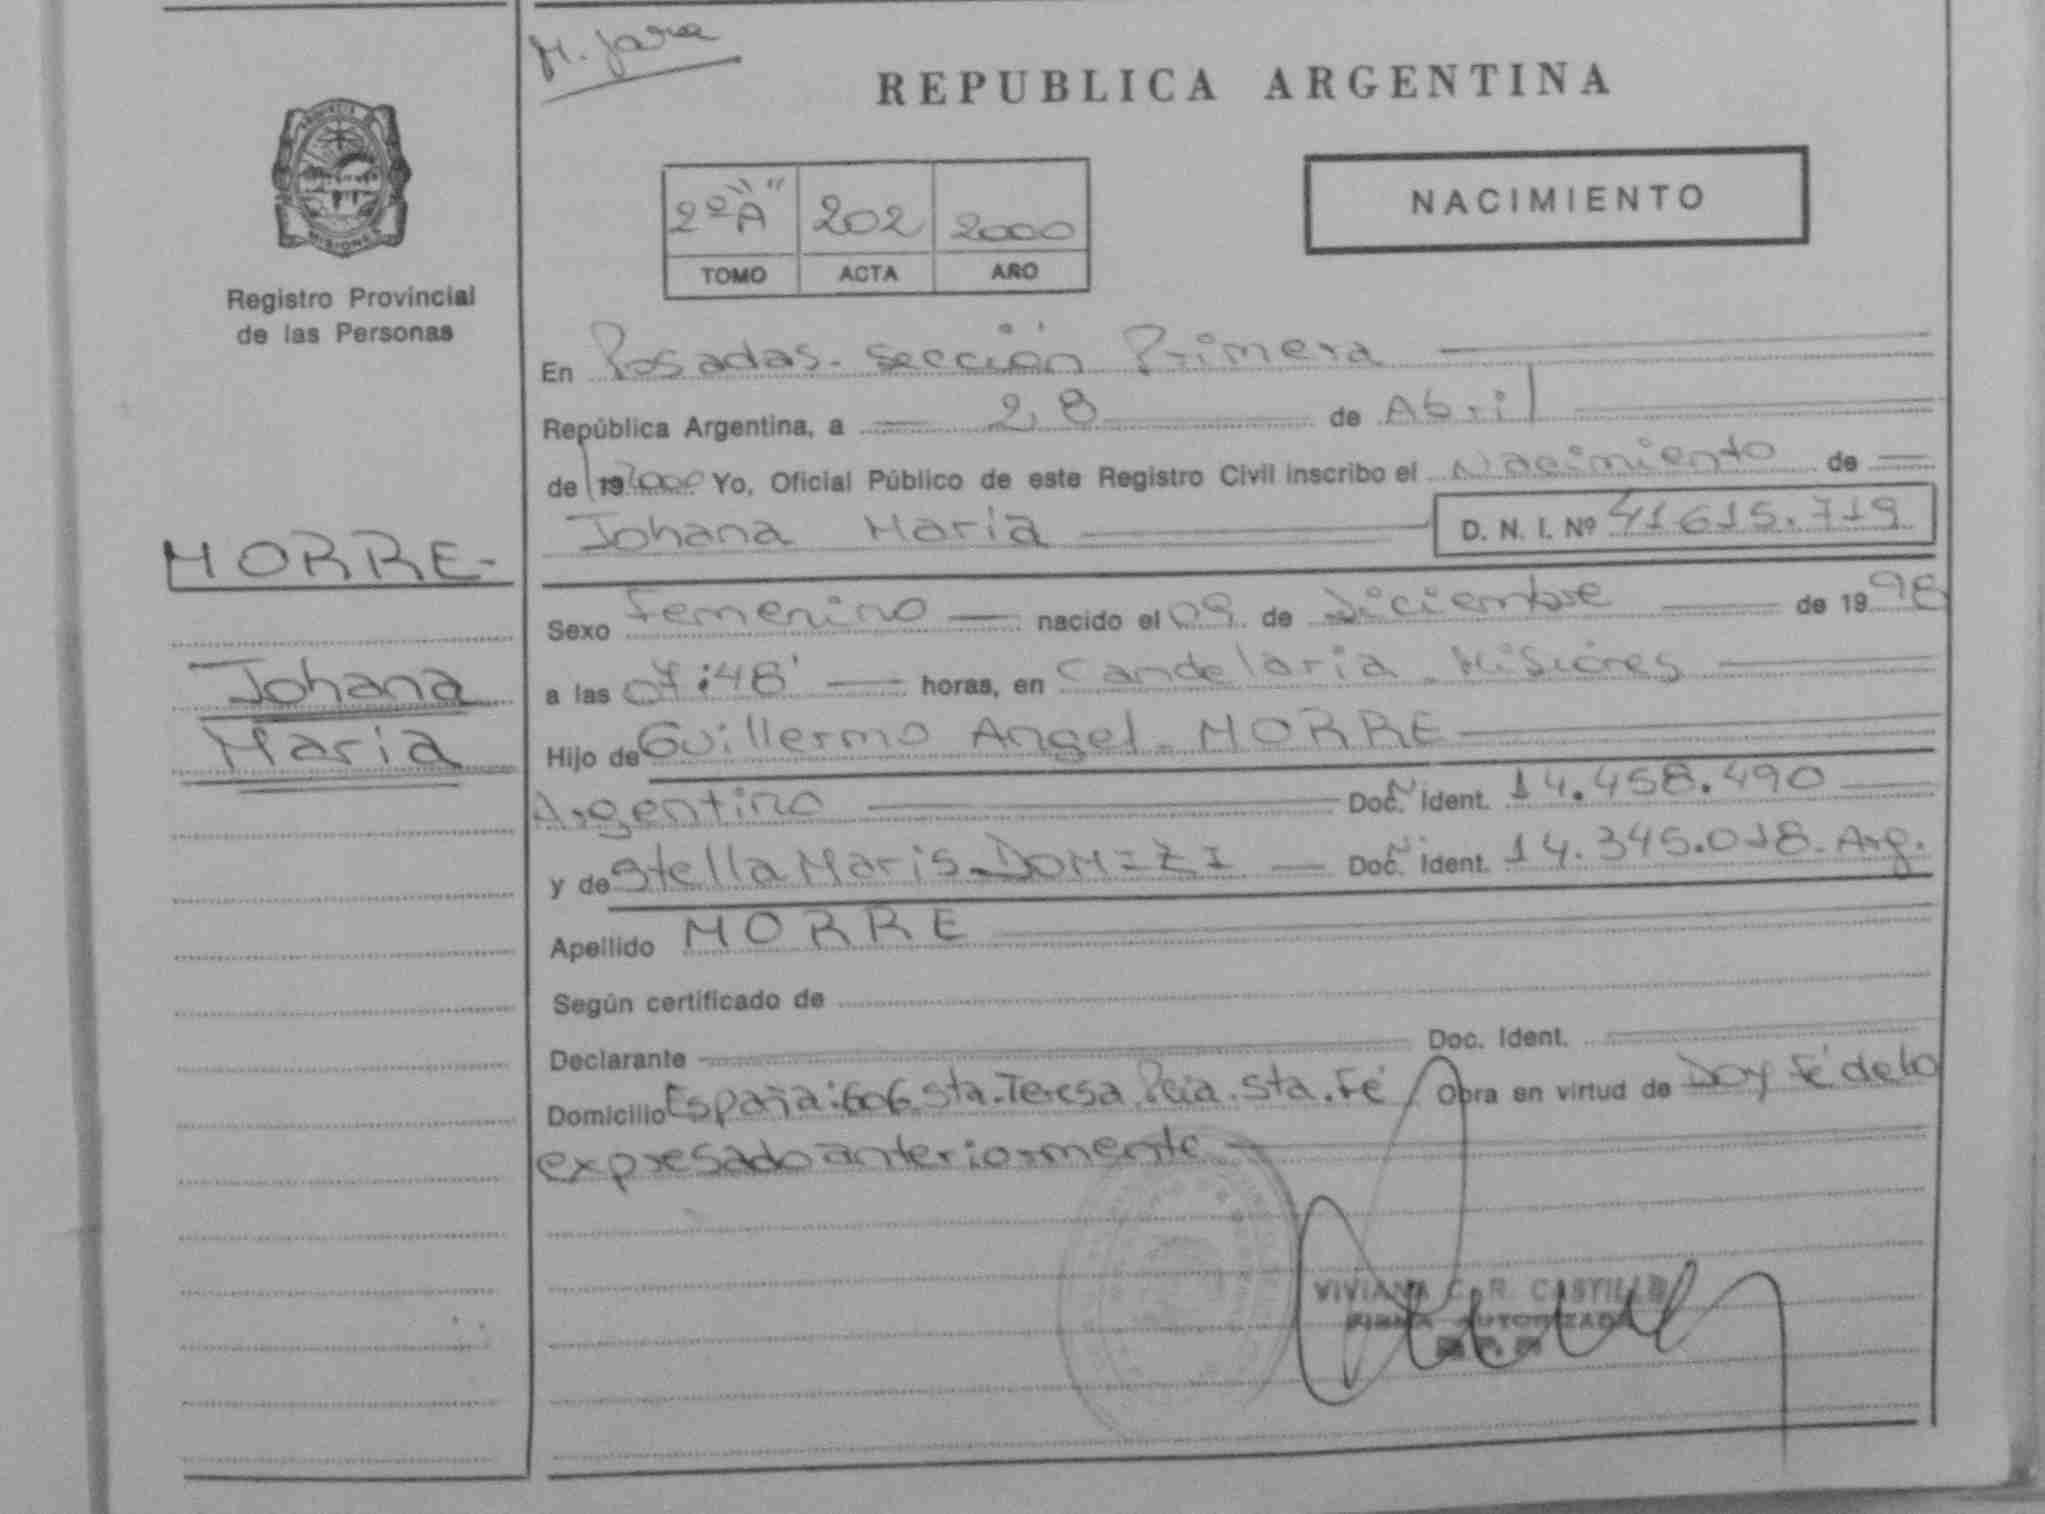 M. Jara
REPUBLICA ARGENTINA
PROVINCIA
MISIONES
Registro Provincial
de las Personas
2º "A" 202 2000
TOMO ACTA AÑO
NACIMIENTO
En Posadas - sección Primera
República Argentina, a 28 de Abril
de 19 2000 Yo, Oficial Público de este Registro Civil inscribo el Nacimiento de
Johana Maria D. N. I. Nº 41615.719
MORRE-
Johana
Maria
Sexo Femenino nacido el 09 de Diciembre de 19 98
a las 07:48' horas, en Candelaria - Misiones
Hijo de Guillermo Angel - MORRE
Argentino Doc. Ident. 14.458.490
y de Stella Maris - DOMIZI Doc. Ident. 14.345.018 - Arg.
Apellido MORRE
Según certificado de
Declarante Doc. Ident.
Domicilio España: 606 Sta. Teresa Pcia. Sta. Fé Obra en virtud de Doy fé de lo
expresado anteriormente
VIVIANA C. R. CASTILLO
FIRMA AUTORIZADA